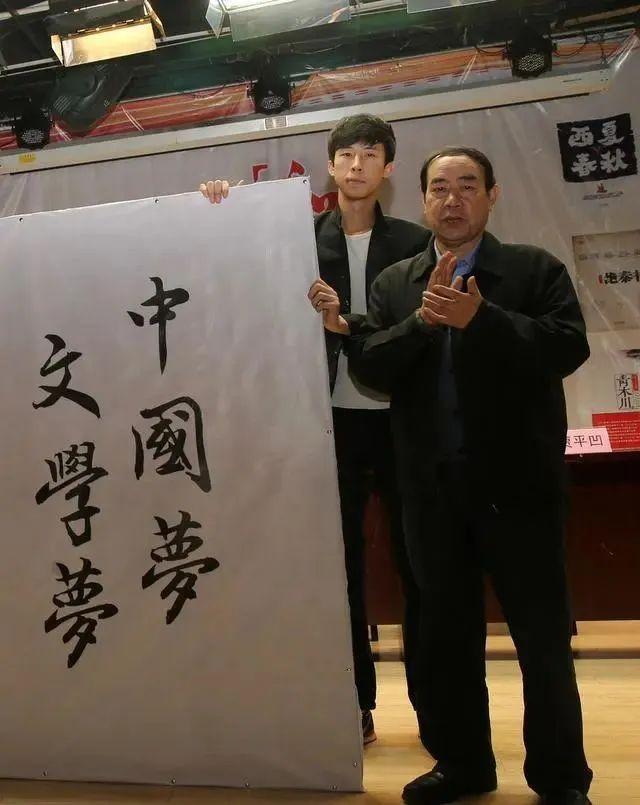 中國夢
文學夢
西夏
春秋
青木川
平凹